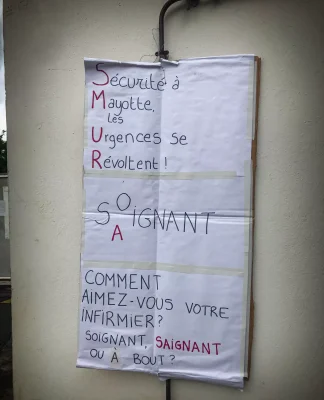 Sécurité à
Mayotte,
les
Urgences se
Révoltent !
SOIGNANT
A
COMMENT
AIMEZ-VOUS VOTRE
INFIRMIER ?
SOIGNANT, SAIGNANT
OU À BOUT ?